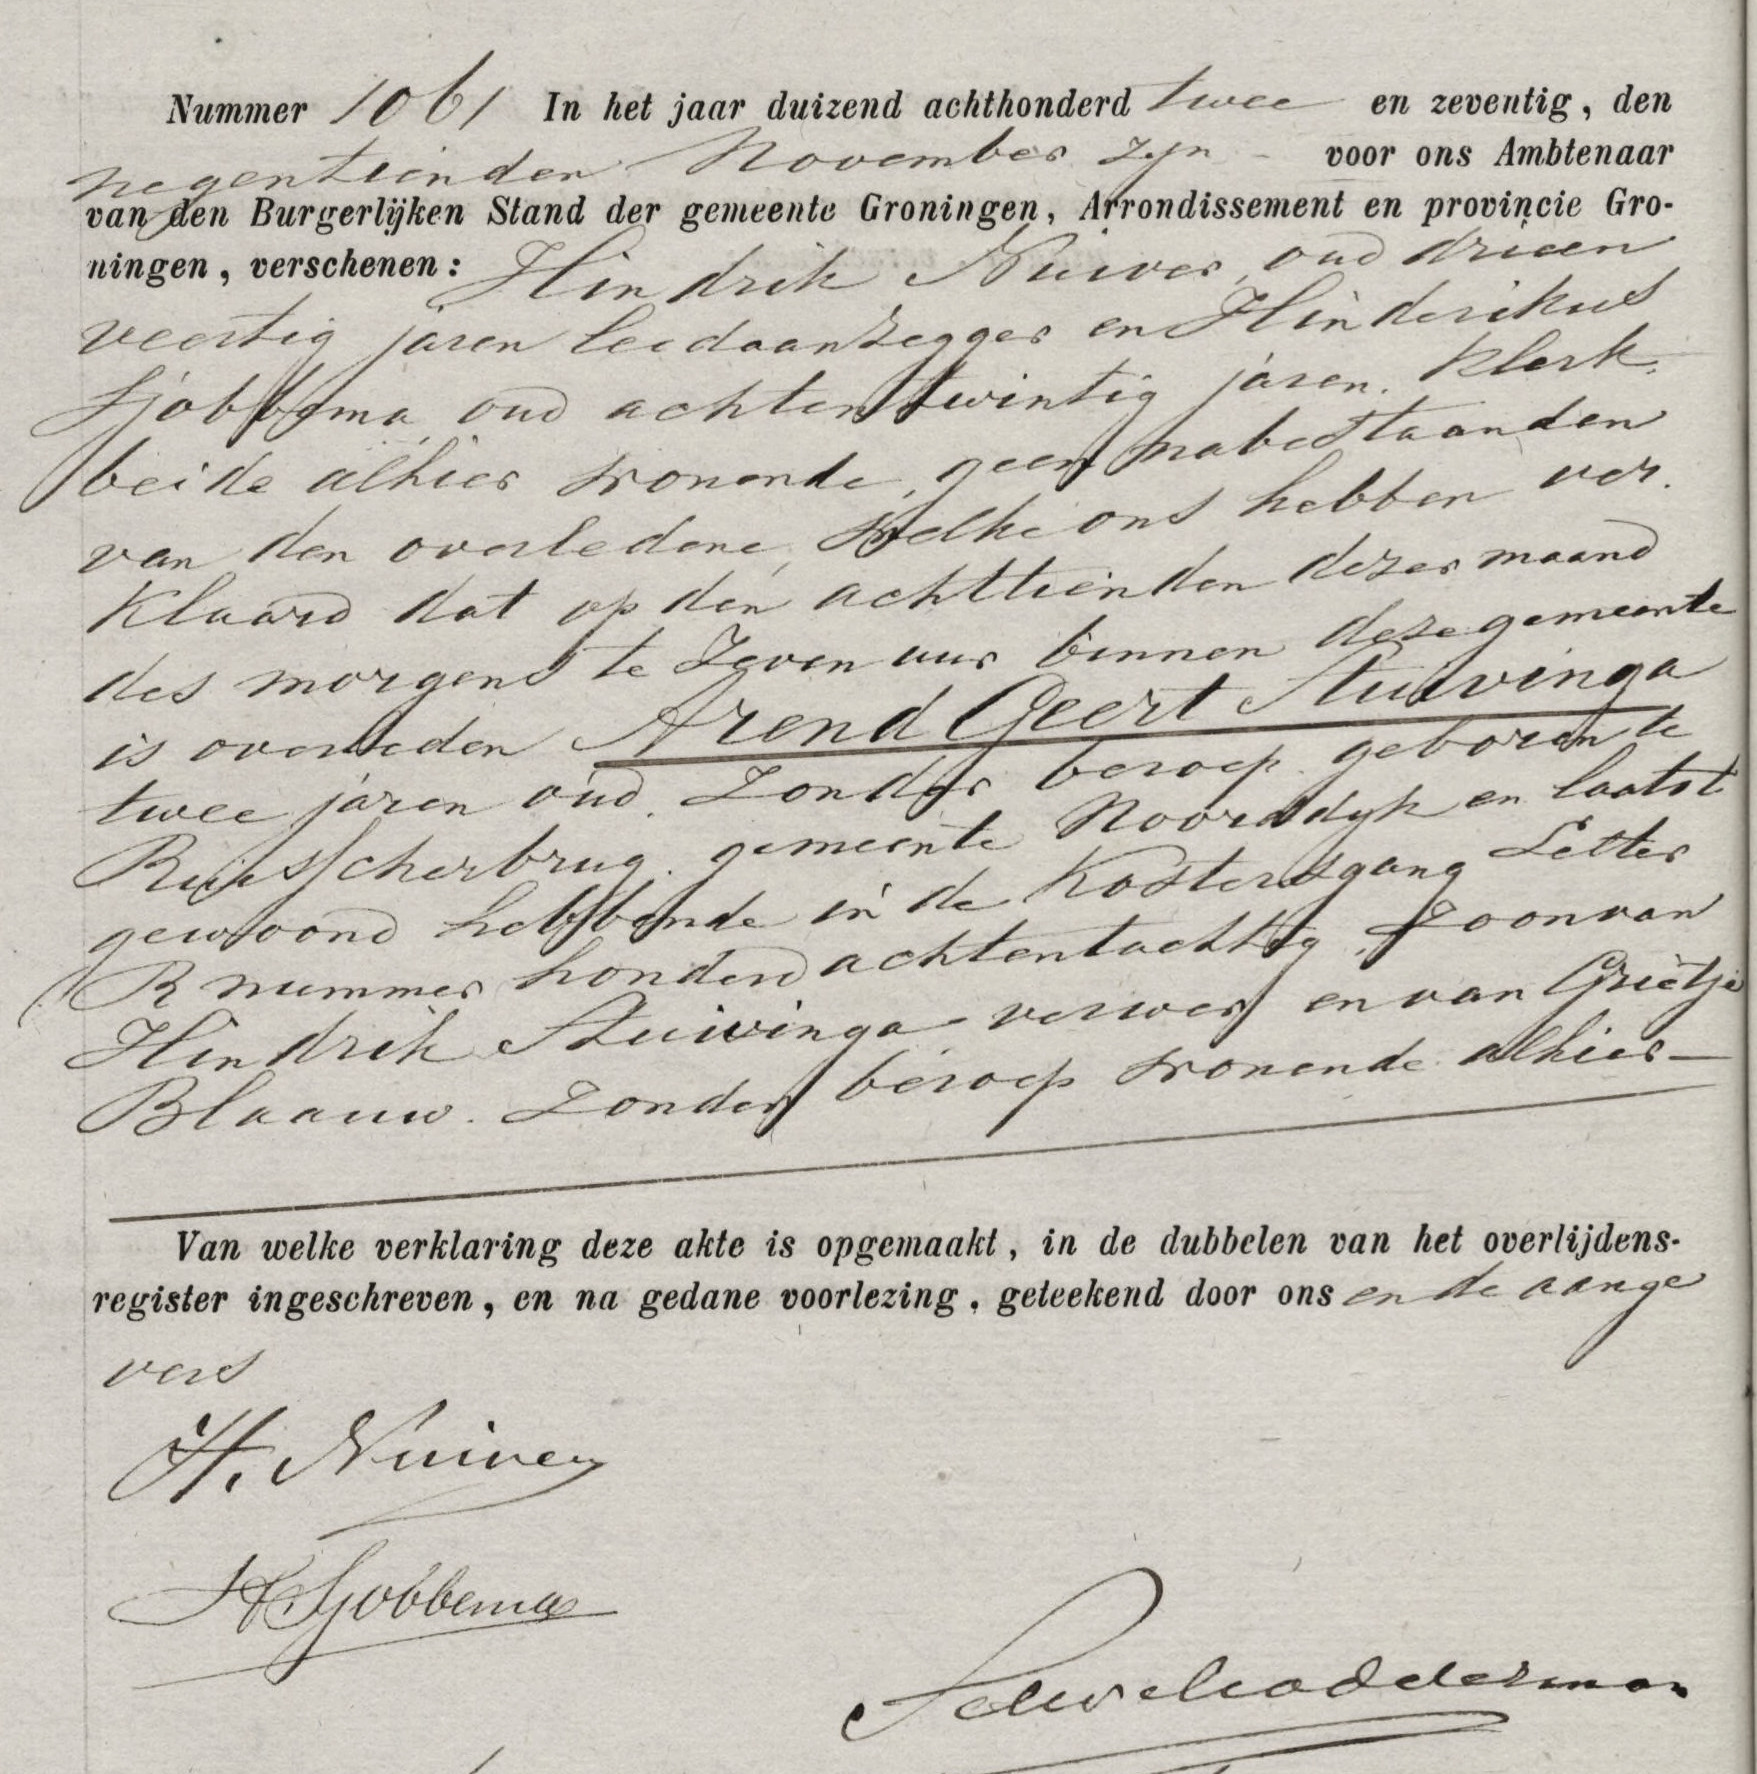 Nummer 1061 In het jaar duizend achthonderd twee en zeventig, den
negentienden November zyn - voor ons Ambtenaar
van den Burgerlijken Stand der gemeente Groningen, Arrondissement en provincie Gro-
ningen, verschenen: Hindrik Nuiver, oud drieen
veertig jaren leedaanzegger en Hinderikus
Sjobbema oud achtentwintig jaren. Klerk.
beide alhier wonende, geen nabestaanden
van den overledene, welke ons hebben ver.
klaard dat op den achttienden dezer maand
des morgens te Zeven uur binnen deze gemeente
is overleden Arend Geert Stuivinga
twee jaren oud. Zonder beroep. geboren te
Ruisscherbrug. gemeente Noorddyk en laatst
gewoond hebbende in de Kostersgang Letter
R nummer honderd achtentachtig. Zoon van
Hindrik Stuivinga verwer en van Grietje
Blaauw. Zonder beroep wonende alhier-
Van welke verklaring deze akte is opgemaakt, in de dubbelen van het overlijdens-
register ingeschreven, en na gedane voorlezing, geteekend door ons en de aange
vers
H. Nuiver
H Sjobbema